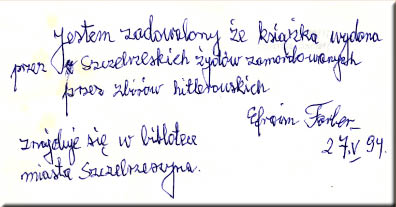 Jestem zadowolony że książka wydana
przez Szczebrzeskich żydów zamordowanych
przez zbirów hitlerowskich
Efraim Farber
27.V 94.
znajduje się w bibliotece
miasta Szczebrzeszyna.